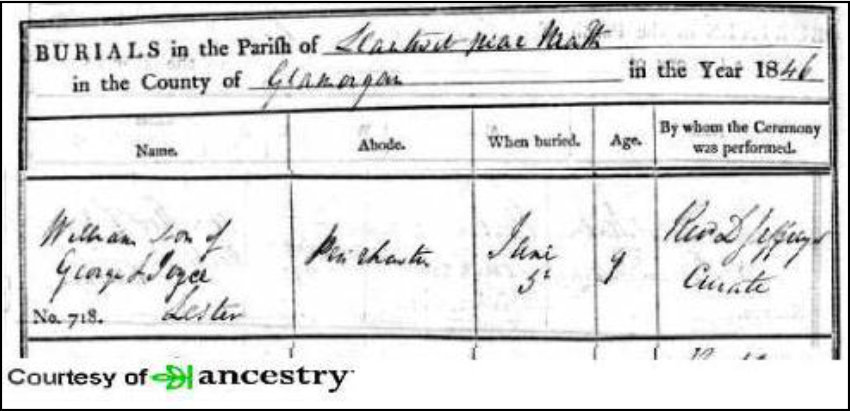 BURIALS in the Parish of Llantwit near Neath
in the County of Glamorgan in the Year 1846
Name. Abode. When buried. Age. By whom the Ceremony was performed.
William son of
George & Joyce
Lester
June
5th
9
Revd D Jeffreys
Curate
No. 718.
Courtesy of ancestry